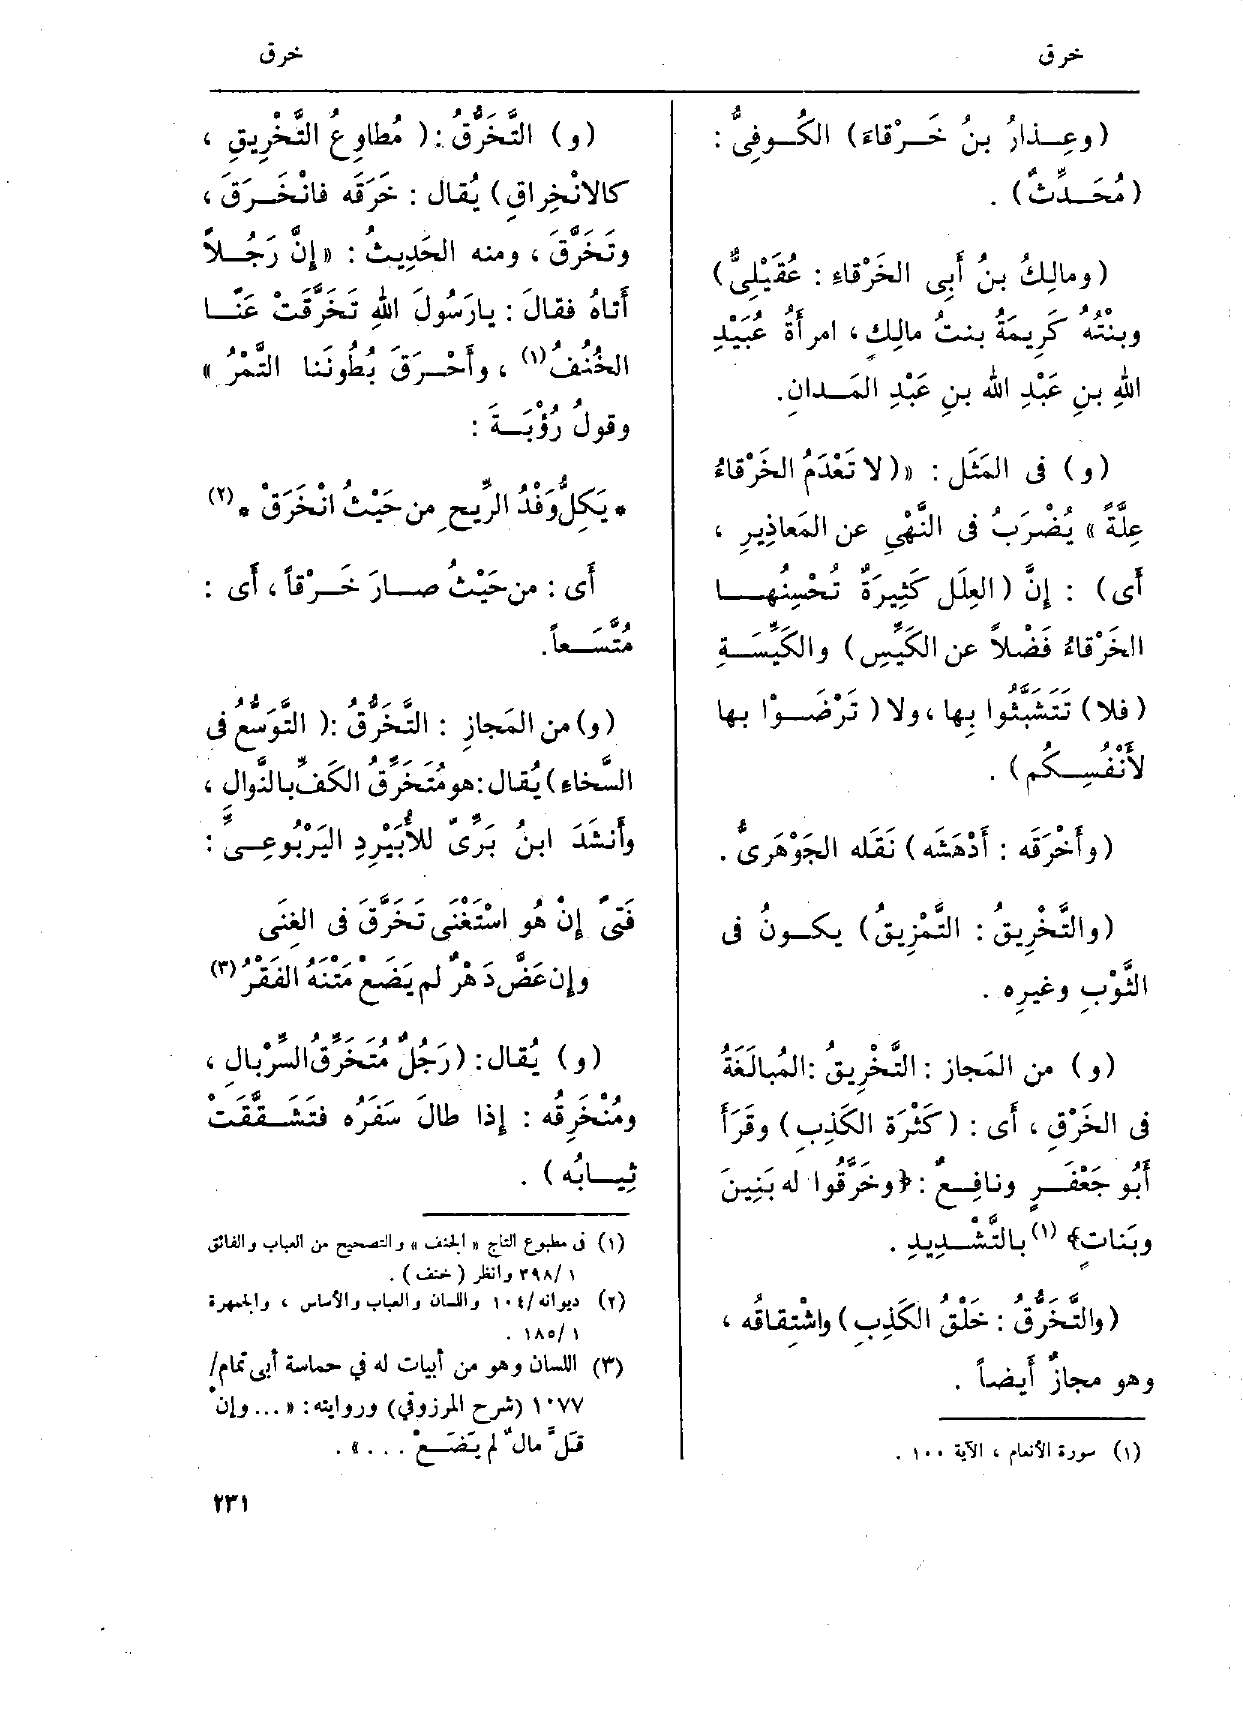 خرق
خرق
(وعِـذارُ بنُ خَـرْقاءَ) الكُـوفِىُّ :
(مُحَـدِّثٌ) .
(ومالِكُ بنُ أَبِى الخَرْقاء : عُقَيْلِىٌّ)
وبنْتُه كَرِيمَةُ بنتُ مالِكٍ، امرأَةُ عُبَيْدِ
اللهِ بنِ عَبْدِ الله بنِ عَبْدِ المَـدانِ.
(و) فى المَثَل : «(لا تَعْدَمُ الخَرْقاءُ
عِلَّةً» يُضْرَبُ فى النَّهْىِ عن المَعاذِيرِ ،
أَى) : إِنَّ (العِلَل كَثِيرَةٌ تُحْسِنُهـا
الخَرْقاءُ فَضْلاً عن الكَيِّسِ) والكَيِّسَـةِ
(فلا) تَتَشَبَّثُوا بِها، ولا (تَرْضَـوْا بها
لأَنْفُسِكُم) .
(وأَخْرَقَه : أَدْهَشَه) نَقَله الجَوْهَرِىُّ .
(والتَّخْرِيقُ : التَّمْزِيقُ) يكـونُ فى
الثَّوْبِ وغيرِه .
(و) من المَجاز : التَّخْرِيقُ :المُبالَغَةُ
فى الخَرْقِ ، أَى : (كَثْرَة الكَذِبِ) وقَرَأَ
أَبُو جَعْفَـرٍ ونافِـعٌ : ﴿وخَرَّقُوا له بَنِينَ
وبَناتٍ﴾ (١) بالتَّشْـدِيدِ .
(والتَّخَرُّقُ : خَلْقُ الكَذِبِ) واشْتِقاقُه ،
وهو مجازٌ أَيضاً .
(١) سورة الأنعام ، الآية ١٠٠ .
(و) التَّخَرُّقُ :( مُطاوِعُ التَّخْرِيقِ ،
كالانْخِراقِ) يُقال : خَرَقَه فانْخَـرَقَ ،
وتَخَرَّقَ ، ومنه الحَدِيثُ : «إِنَّ رَجُـلاً
أَتاهُ فقالَ : يارَسُولَ اللهِ تَخَرَّقَتْ عَنَّـا
الخُنُفُ(١) ، وأَحْـرَقَ بُطُونَنا التَّمْرُ »
وقولُ رُؤْبَـةَ :
* يَكِلُّ وَفْدُ الرِّيحِ من حَيْثُ انْخَرَقْ *(٢)
أَى : من حَيْثُ صـارَ خَـرْقاً ، أَى :
مُتَّسَـعاً.
(و)من المَجازِ : التَّخَرُّقُ :( التَّوَسُّع فى
السَّخاء) يُقال :هو مُتَخَرِّقُ الكَفِّ بالنَّوال ،
وأَنشَدَ ابنُ بَرِّىّ للأُبَيْرِدِ اليَرْبُوعِـىِّ :
فَتىً إِنْ هُو اسْتَغْنَى تَخَرَّقَ فى الغِنَى
وإِن عَضَّ دَهْرٌ لم يَضَعْ مَتْنَهُ الفَقْرُ(٣)
(و) يُقال: (رَجُلٌ مُتَخَرِّقُ السِّرْبالِ ،
ومُنْخَرِقُه : إِذا طالَ سَفَرُه فتَشَـقَّقَتْ
ثِيـابُه) .
(١) فى مطبوع التاج « الخنف » والتصحيح من العباب والفائق
٣٩٨/١ وانظر (خنف) .
(٢) ديوانه/١٠٤ واللسان والعباب والأساس ، والجمهرة
١٨٥/١ .
(٣) اللسان وهو من أبيات له في حماسة أبى تمام/
١٠٧٧ (شرح المرزوقي) وروايته: «... وإنْ
قَـلَّ مالٌ لم يَضَـعْ ...» .
٢٣١